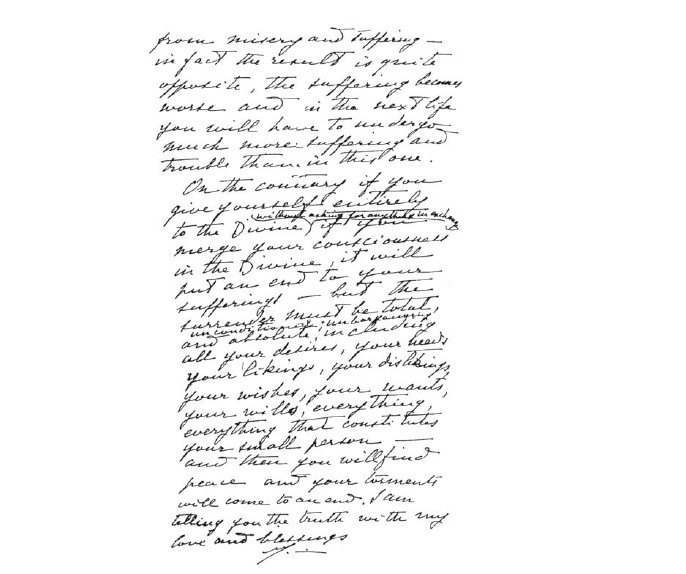 from misery and suffering —
in fact the result is quite
opposite, the suffering becomes
worse and in the next life
you will have to undergo
much more suffering and
trouble than in this one.
On the contrary if you
give yourself entirely
(without asking for anything in exchange)
to the Divine, if you
merge your consciousness
in the Divine, it will
put an end to your
sufferings — but the
surrender must be total,
unconditional, unbargaining
and absolute, including
all your desires, your needs
your likings, your dislikings,
your wishes, your wants,
your wills, everything,
everything that constitutes
your small person —
and then you will find
peace and your torments
will come to an end. I am
telling you the truth with my
love and blessings